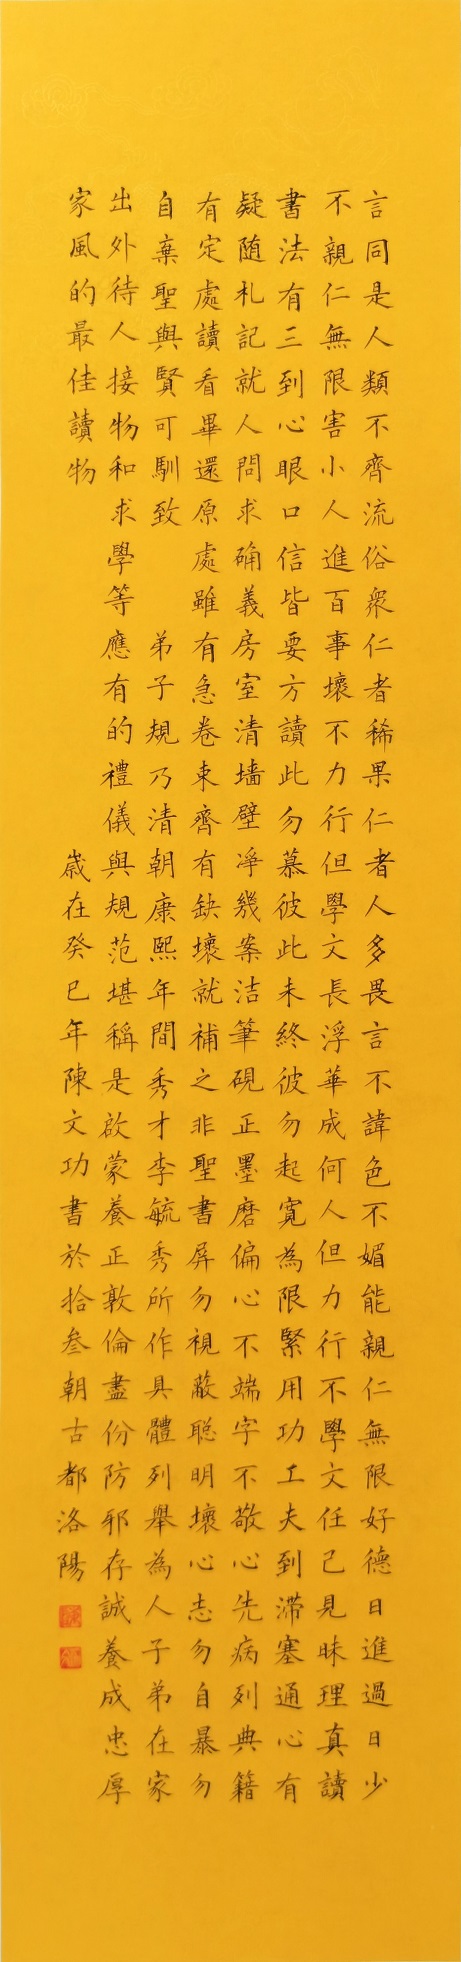 言同是人類不齊流俗衆仁者稀果仁者人多畏言不諱色不媚能親仁無限好德日進過日少
不親仁無限害小人進百事壞不力行但學文長浮華成何人但力行不學文任己見昧理真讀
書法有三到心眼口信皆要方讀此勿慕彼此未終彼勿起寬為限緊用功工夫到滞塞通心有
疑随札記就人問求确義房室清墙壁凈幾案洁筆硯正墨磨偏心不端字不敬心先病列典籍
有定處讀看畢還原處雖有急卷束齊有缺壞就補之非聖書屏勿視蔽聪明壞心志勿自暴勿
自棄聖與賢可馴致　弟子規乃清朝康熙年間秀才李毓秀所作具體列舉為人子弟在家
出外待人接物和求學等應有的禮儀與規范堪稱是啟蒙養正敦倫盡份防邪存誠養成忠厚
家風的最佳讀物
歲在癸巳年陳文功書於拾叁朝古都洛陽